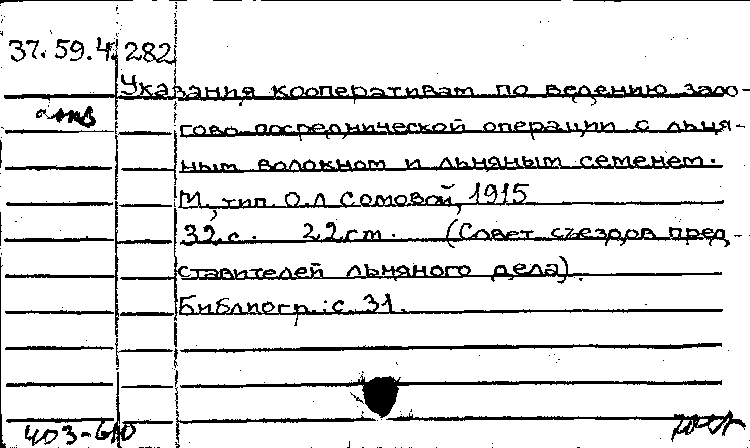 37.59.4.282
Указания кооперативам по ведению зало-
гово-посреднической операции с льня-
ным волокном и льняным семенем.
М., тип. О.Л Сомовой, 1915
32с. 22см. (Совет съездов пред-
ставителей льняного дела).
Библиогр.: с. 31.
403-60